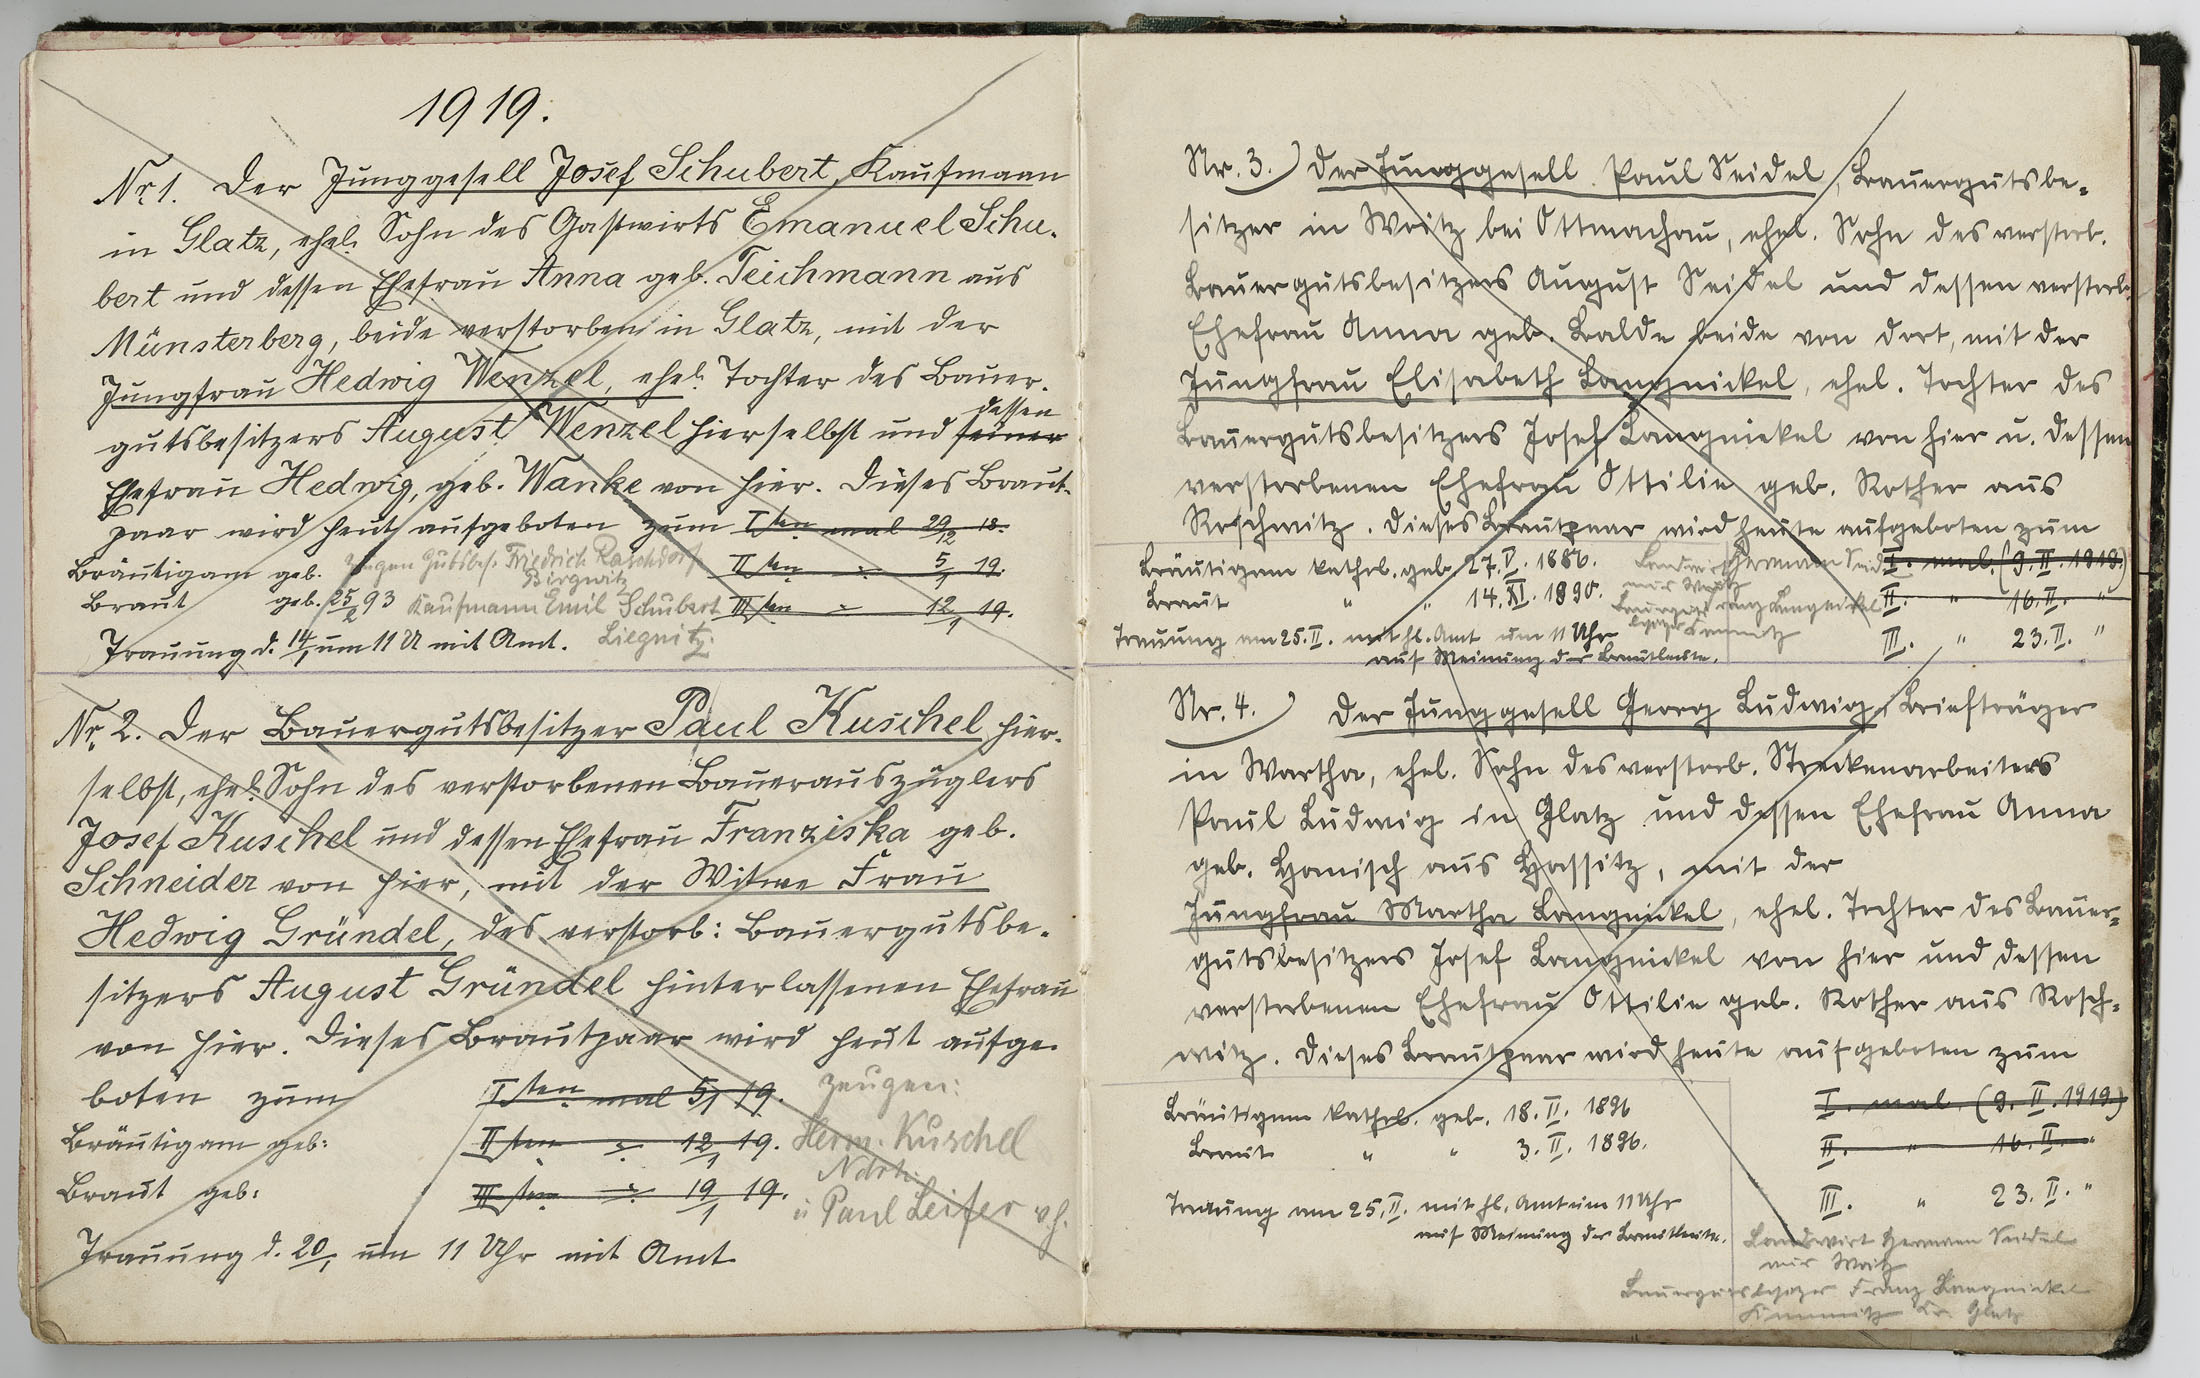 1919.
Nr. 1. Der Junggesell Josef Schubert, Kaufmann
in Glatz, ehel. Sohn des Gastwirts Emanuel Schu-
bert und dessen Ehefrau Anna geb. Teichmann aus
Münsterberg, beide verstorben in Glatz, mit der
Jungfrau Hedwig Wenzel, ehel. Tochter des Bauer-
dessen
gutsbesitzers August Wenzel hierselbst und seiner
Ehefrau Hedwig, geb. Wanke von hier. Dieses Braut-
paar wird heut aufgeboten zum I sten mal 29/12 18.
Bräutigam geb. Zeugen Gutsbes. Friedrich Raschdorf II ten " 5/1 19.
Birgwitz
Braut geb. 25/2 93 Kaufmann Emil Schubert III ten " 12/1 19.
Trauung d. 14/1 um 11 U mit Amt. Liegnitz.
Nr. 2. Der Bauergutsbesitzer Paul Kuschel hier-
selbst, ehel. Sohn des verstorbenen Bauerauszüglers
Josef Kuschel und dessen Ehefrau Franziska geb.
Schneider von hier, mit der Witwe Frau
Hedwig Gründel, des verstorb: Bauergutsbe-
sitzers August Gründel hinterlassenen Ehefrau
von hier. Dieses Brautpaar wird heut aufge-
boten zum I sten mal 5/1 19. Zeugen:
Bräutigam geb: II ten " 12/1 19. Herm. Kuschel
Braut geb: III ten " 19/1 19.
u Paul Leifer v. h.
Trauung d. 20/1 um 11 Uhr mit Amt
Nr. 3.) Der Junggesell Paul Seidel, Bauergutsbe-
sitzer in Woitz bei Ottmachau, ehel. Sohn des verstorb.
Bauergutsbesitzers August Seidel und dessen verstorb.
Ehefrau Anna geb. Balde beide von dort, mit der
Jungfrau Elisabeth Langnickel, ehel. Tochter des
Bauergutsbesitzers Josef Langnickel von hier u. dessen
verstorbenen Ehefrau Ottilie geb. Rother aus
Roschwitz. Dieses Brautpaar wird heute aufgeboten zum
Bräutigam kathol. geb. 27. V. 1886. Landwirt Hermann Seidel I. mal. (9. II. 1919.)
aus Woitz
Braut " " 14. XI. 1890. II. " 16. II. "
Trauung am 25. II. mit hl. Amt um 11 Uhr III. " 23. II. "
auf Meinung der Brautleute.
Nr. 4.) Der Junggesell Georg Ludwig, Briefträger
in Wartha, ehel. Sohn des verstorb. Streckenarbeiters
Paul Ludwig in Glatz und dessen Ehefrau Anna
geb. Hanisch aus Hassitz, mit der
Jungfrau Martha Langnickel, ehel. Tochter des Bauer-
gutsbesitzers Josef Langnickel von hier und dessen
verstorbenen Ehefrau Ottilie geb. Rother aus Rosch-
witz. Dieses Brautpaar wird heute aufgeboten zum
Bräutigam kathol. geb. 18. II. 1896 I. mal. (9. II. 1919.)
Braut " " 3. II. 1896. II. " 16. II. "
Trauung am 25. II. mit hl. Amt um 11 Uhr III. " 23. II. "
auf Meinung der Brautleute.
Landwirt Hermann Seidel
aus Woitz
Bauergutsbesitzer Franz Langnickel
Kr. Glatz